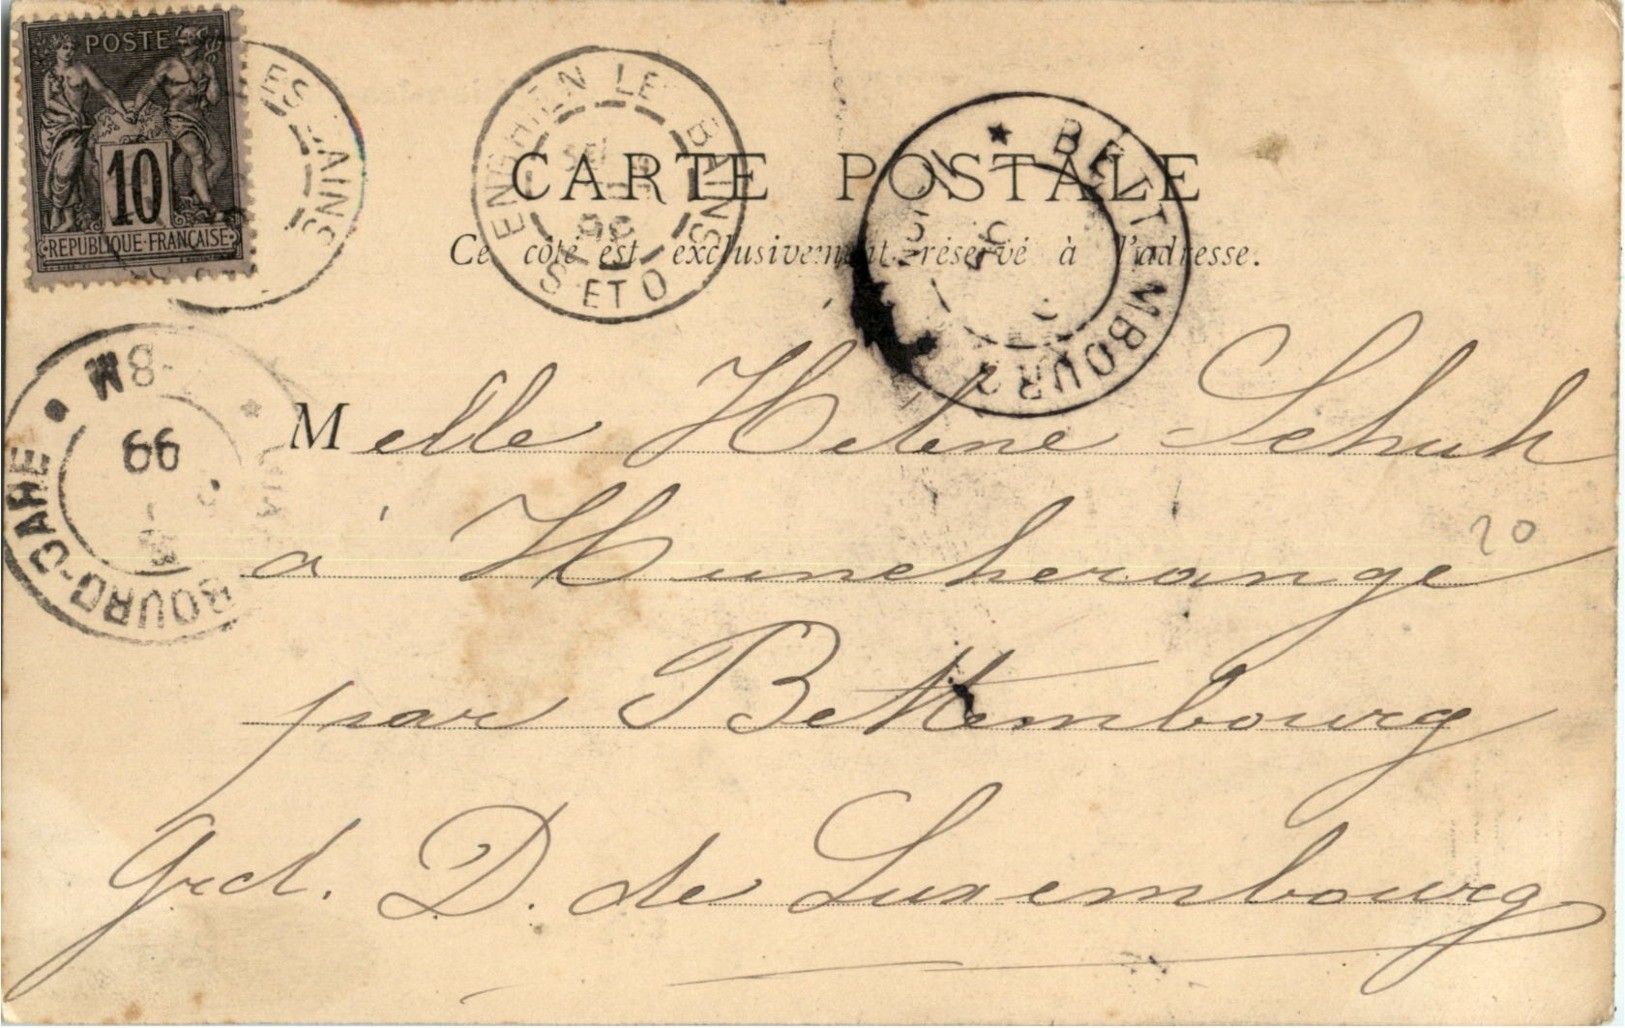 POSTE
10
REPUBLIQUE FRANÇAISE
ENGHIEN LES BAINS
S. ET O.
CARTE POSTALE
Ce côté est exclusivement réservé à l'adresse.
BETTEMBOURG
8M
99
BOURG-GARE
Melle Helene Schuh
à Huncherange
20
par Bettembourg
Grd. D. de Luxembourg